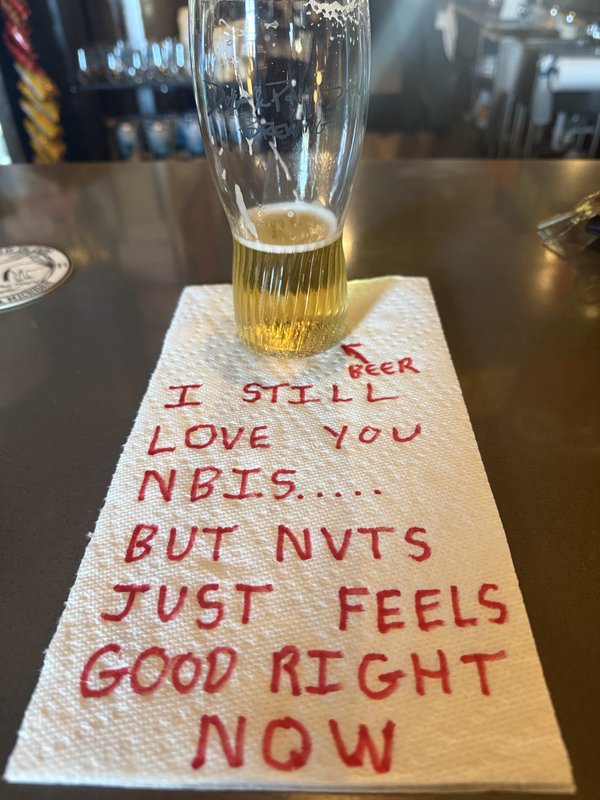 BREWING
BEER
I STILL
LOVE YOU
NBIS.....
BUT NVTS
JUST FEELS
GOOD RIGHT
NOW